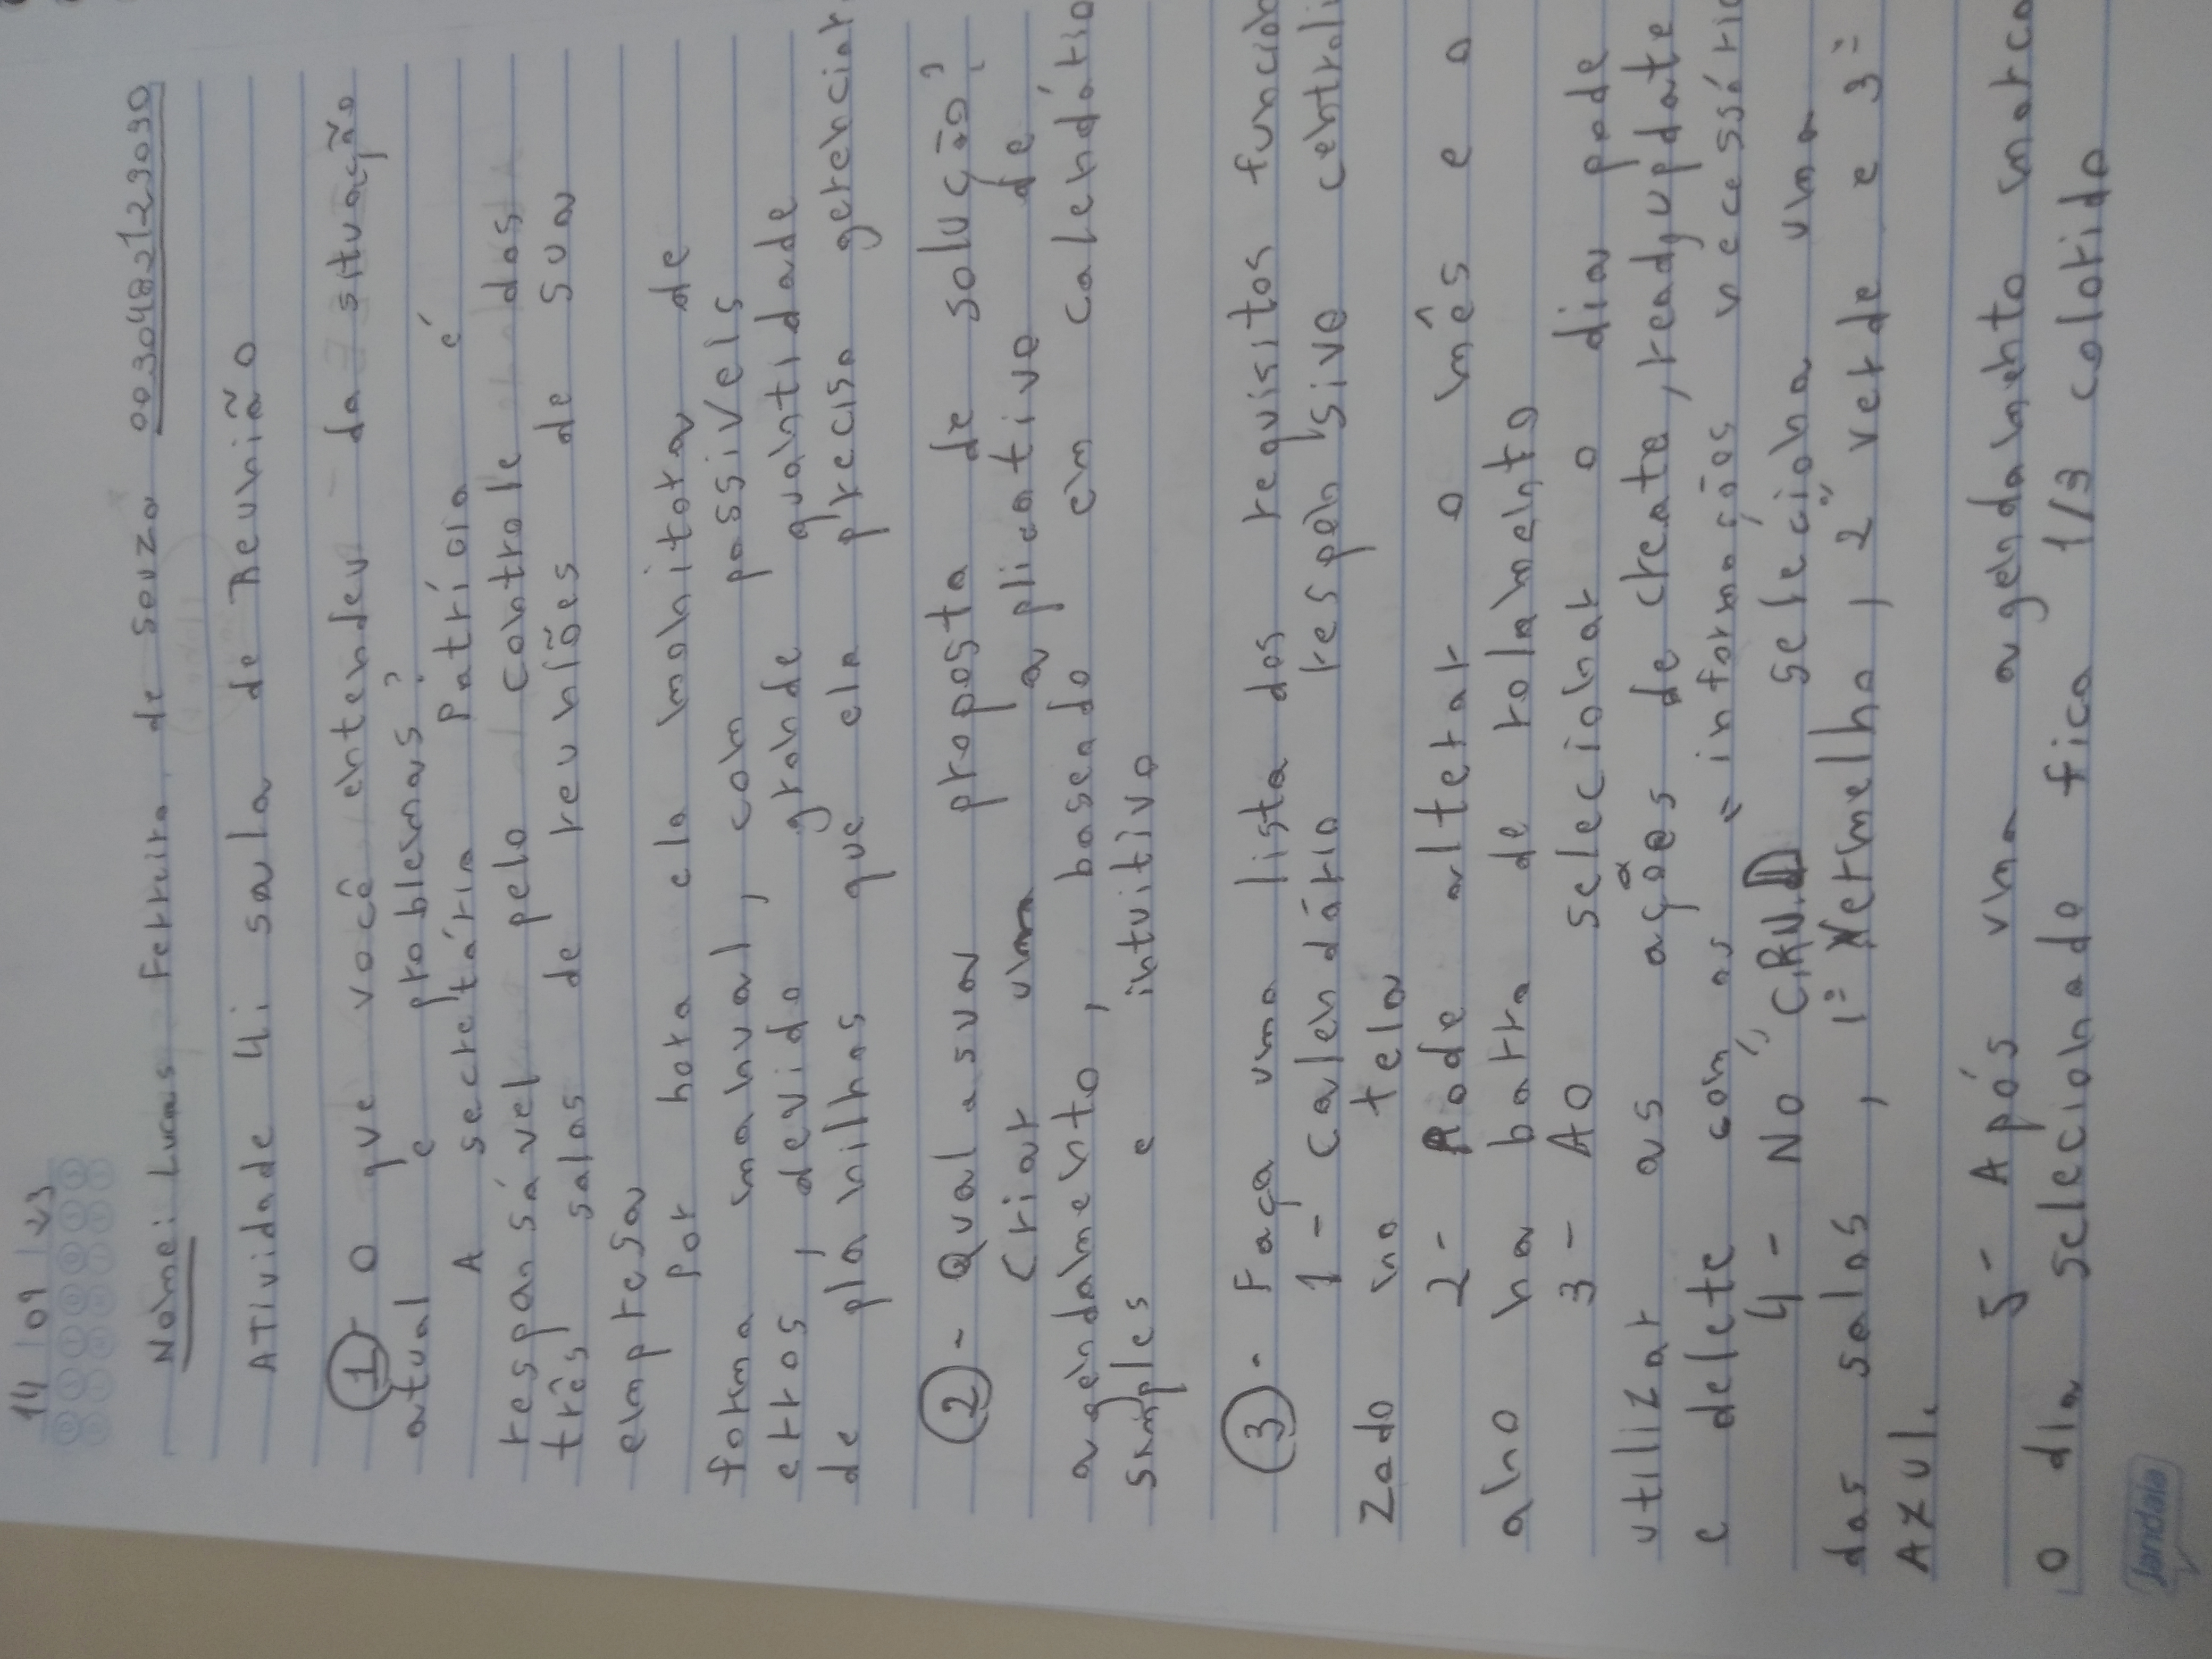 14 09 23
Nome: Lucas Ferreira de Souza 0030482123030
Atividade 4: sala de Reunião
1 - O que você entendeu da situação
atual e problemas?
A secretária Patrícia é
responsável pelo controle das
três salas de reuniões de sua
empresa
Por hora ela monitora de
forma manual, com possiveis
erros, devido grande quantidade
de planilhas que ela precisa gerenciar
2 - Qual a sua proposta de solução?
Criar um aplicativo de
agendamento, baseado em calendário
simples e intuitivo
3 - Faça uma lista dos requisitos funcion
1 - Calendário responsivo centrali
zado na tela
2 - Pode alterar o mês e o
ano na barra de rolamento
3 - Ao selecionar o dia pode
utilizar as ações de create, read, update
e delete com as informações necessária
4 - No "C.R.U.D seleciona uma
das salas, 1º Vermelho, 2º verde e 3º
Azul.
5 - Após uma agendamento marca
o dia selecionado fica 1/3 colorido
jandaia